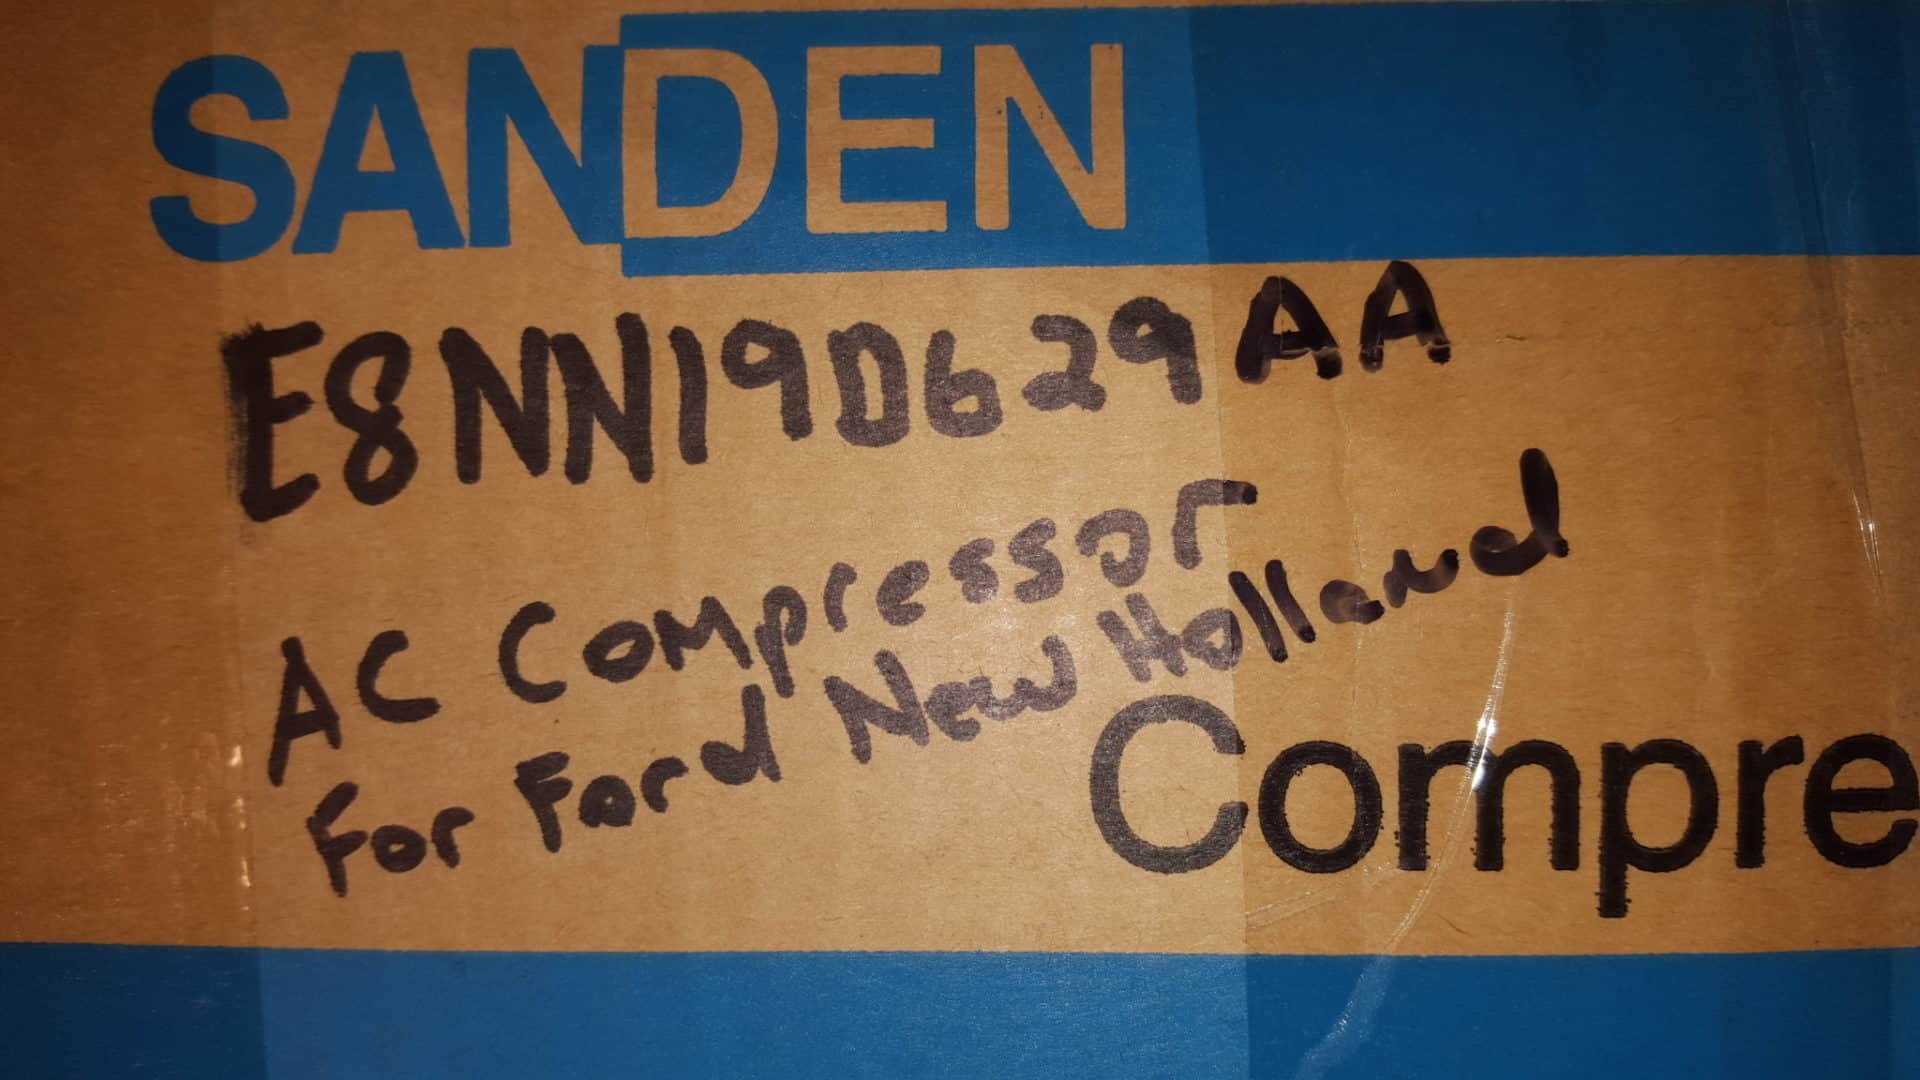 SANDEN
E8NN19D629AA
AC Compressor
For Ford New Holland
Compre